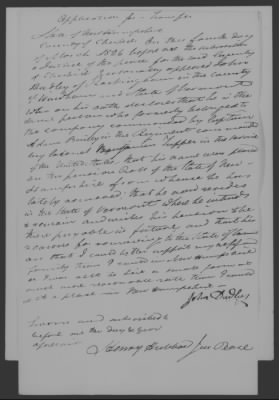 Application for Transfer
State of New Hampshire
County of Cheshire On this fourth day
of March 1826 before me the subscriber
a Justice of the peace for the said County
of Cheshire personally appeared John
Dudley of Rockingham in the County
of Windham and State of Vermont
who on his oath declares that he is the
same person who formerly belonged to
the company commanded by Captain
Adam in the Regiment commanded
by Colonel in the service
of the United States, that his name was placed
on the pension Roll of the State of New
Hampshire from whence he has
lately removed, that he now resides
in the State of Vermont where he intends
to remain and wishes his pension to be
there payable in future and that his
reasons for removing to the State of Vermont
are that I could better support myself and
family than I could in New Hampshire
as I am able to hire a small farm at
much more reasonable rate than I could
at a place in New Hampshire
John Dudley
Sworn and subscribed
before me the day & year
aforesaid
Henry Hubbard Jus. Peace